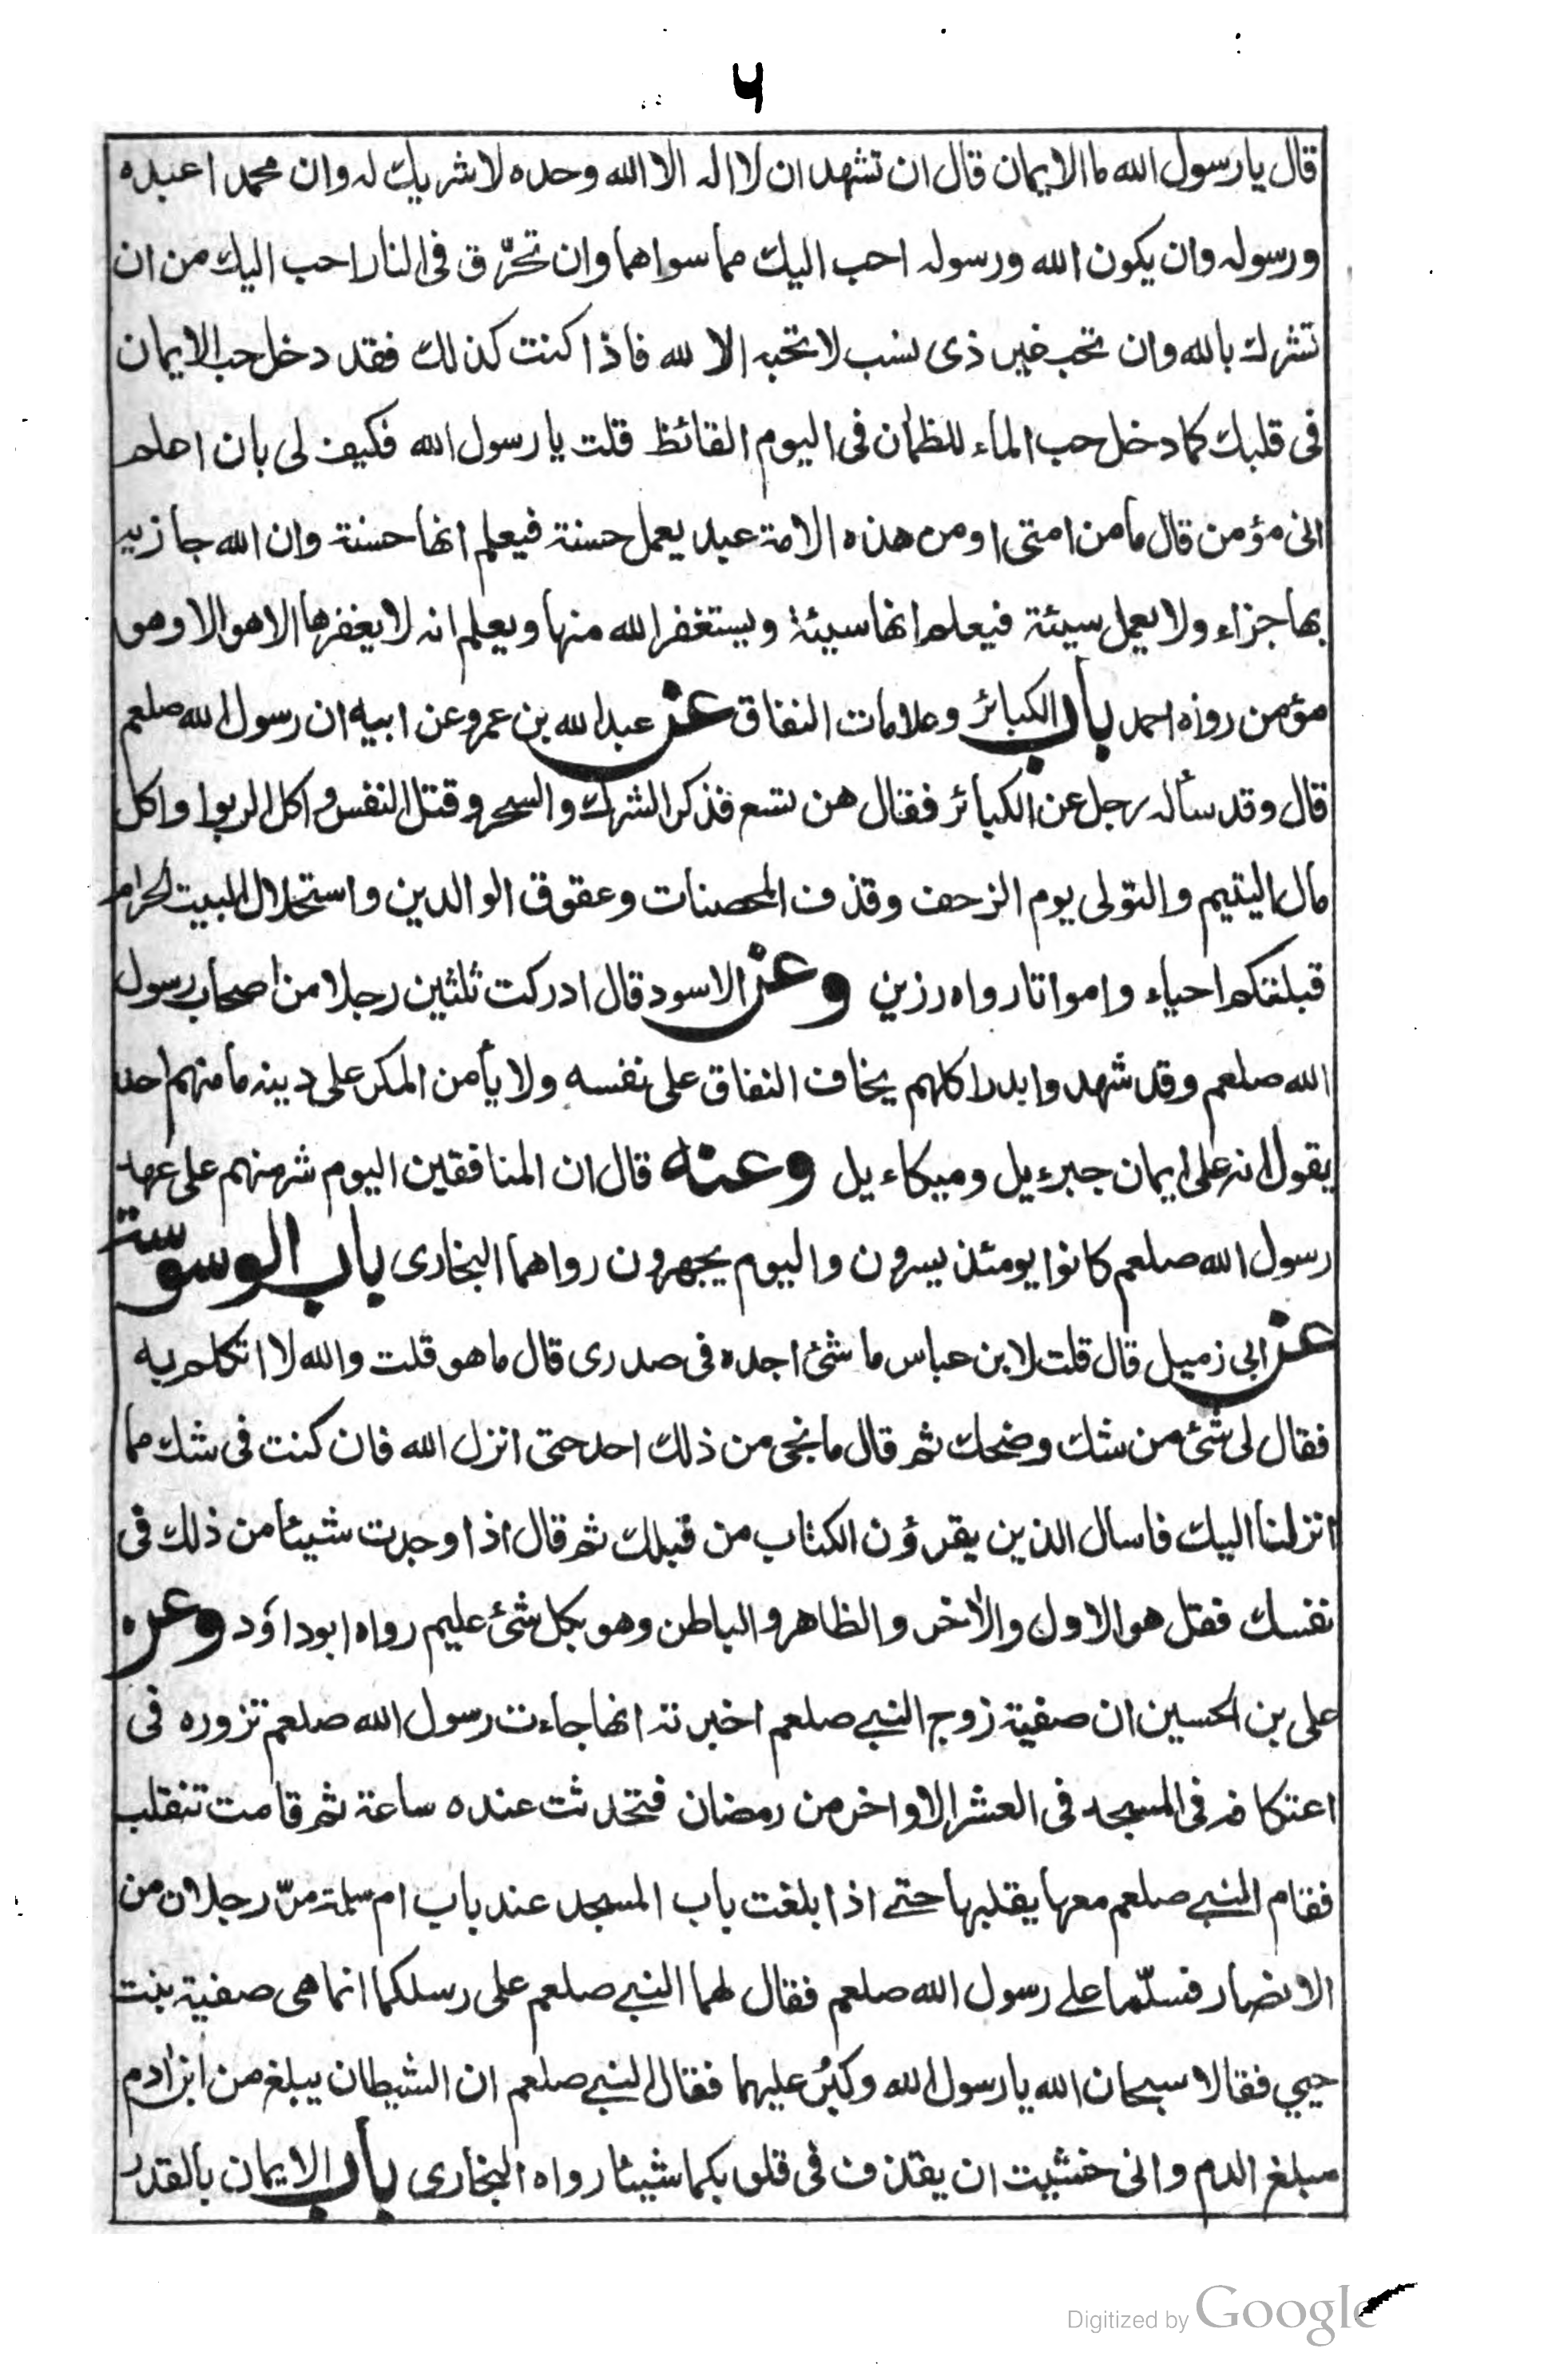 ۴
قال يا رسول الله ما الايمان قال ان تشهد ان لا اله الا الله وحده لا شريك له وان محمدا عبده
ورسوله وان يكون الله ورسوله احب اليك مما سواهما وان تحرّق فى النار احب اليك من ان
تشرك بالله وان تحب غير ذى نسب لا تحبه الا لله فاذا كنت كذلك فقد دخل حب الايمان
فى قلبك كما دخل حب الماء للظمأن فى اليوم القائظ قلت يا رسول الله فكيف لى بان اعلم
انى مؤمن قال ما من امتى او من هذه الامة عبد يعمل حسنة فيعلم انها حسنة وان الله جازيه
بها جزاء ولا يعمل سيئة فيعلم انها سيئة ويستغفر الله منها ويعلم انه لا يغفرها الا هو الا وهو
مؤمن رواه احمد باب الكبائر وعلامات النفاق عن عبدالله بن عمرو عن ابيه ان رسول الله صلعم
قال وقد سأله رجل عن الكبائر فقال هن تسع فذكر الشرك والسحر وقتل النفس واكل الربوا واكل
مال اليتيم والتولى يوم الزحف وقذف المحصنات وعقوق الوالدين واستحلال البيت الحرام
قبلتكم احياء وامواتا رواه رزين وعن الاسود قال ادركت ثلثين رجلا من اصحاب رسول
الله صلعم وقد شهدوا بدرا كلهم يخاف النفاق على نفسه ولا يأمن المكر على دينه ما منهم احد
يقول انه على ايمان جبرءيل وميكاءيل وعنه قال ان المنافقين اليوم شر منهم على عهد
رسول الله صلعم كانوا يومئذ يسرون واليوم يجهرون رواهما البخارى باب الوسوسة
عن ابى زميل قال قلت لابن عباس ما شئ اجده فى صدرى قال ما هو قلت والله لا اتكلم به
فقال لى شئ من شك وضحك ثم قال ما نجى من ذلك احد حتى انزل الله فان كنت فى شك مما
انزلنا اليك فاسال الذين يقرؤن الكتاب من قبلك ثم قال اذا وجدت شيئا من ذلك فى
نفسك فقل هو الاول والاخر والظاهر والباطن وهو بكل شئ عليم رواه ابوداؤد وعن
على بن الحسين ان صفية زوج النبے صلعم اخبرته انها جاءت رسول الله صلعم تزوره فى
اعتكافه فى المسجد فى العشر الاواخر من رمضان فتحدثت عنده ساعة ثم قامت تنقلب
فقام النبے صلعم معها يقلبها حتے اذا بلغت باب المسجد عند باب ام سلمة مرّ رجلان من
الانصار فسلّما علے رسول الله صلعم فقال لهما النبے صلعم على رسلكما انما هى صفية بنت
حيي فقالا سبحان الله يا رسول الله وكبُر عليهما فقال النبے صلعم ان الشيطان يبلغ من ابن ادم
مبلغ الدم وانى خشيت ان يقذف فى قلوبكما شيئا رواه البخارى باب الايمان بالقدر
Digitized by Google